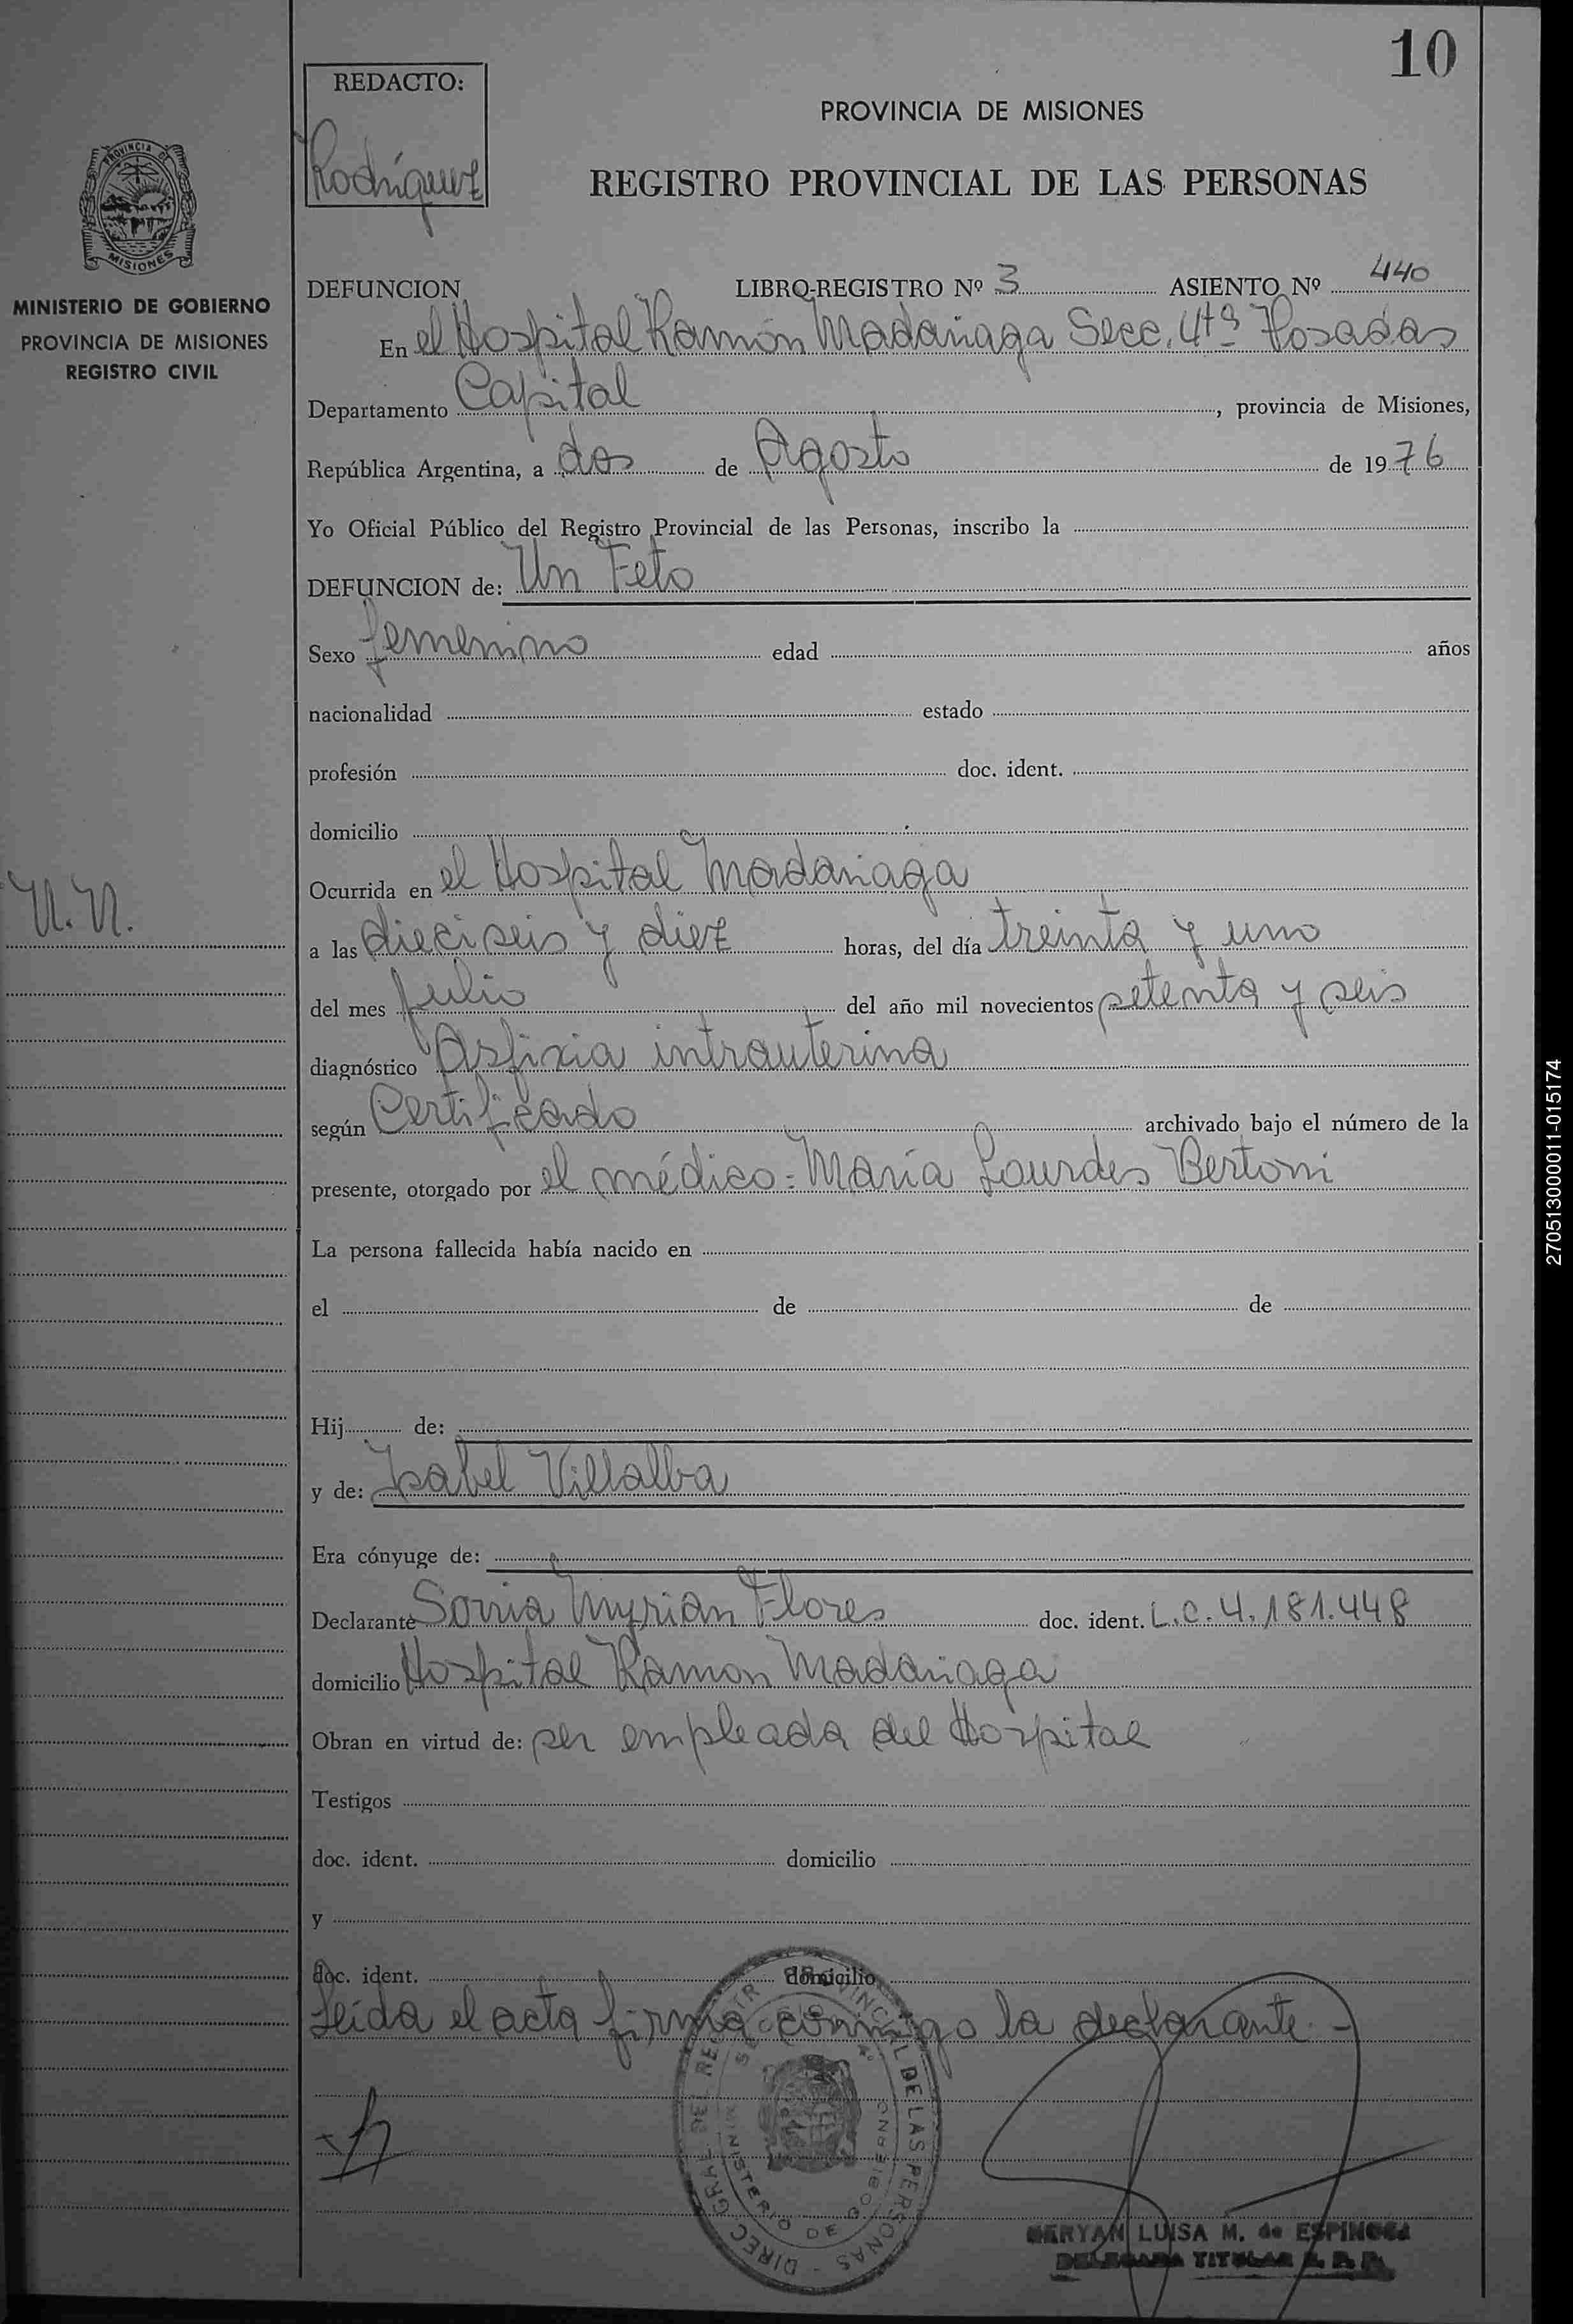 10
REDACTO:
Rodríguez
PROVINCIA DE MISIONES
REGISTRO PROVINCIAL DE LAS PERSONAS
PROVINCIA DE
MISIONES
MINISTERIO DE GOBIERNO
PROVINCIA DE MISIONES
REGISTRO CIVIL
DEFUNCION LIBRO-REGISTRO Nº 3 ASIENTO Nº 440
En el Hospital Ramón Madariaga Secc. 4ta Posadas
Departamento Capital, provincia de Misiones,
República Argentina, a dos de Agosto de 1976
Yo Oficial Público del Registro Provincial de las Personas, inscribo la
DEFUNCION de: Un Feto
Sexo femenino edad años
nacionalidad estado
profesión doc. ident.
domicilio
Ocurrida en el Hospital Madariaga
N.N.
a las dieciseis y diez horas, del día treinta y uno
del mes julio del año mil novecientos setenta y seis
diagnóstico Asfixia intrauterina
según Certificado archivado bajo el número de la
presente, otorgado por el médico: María Lourdes Bertoni
La persona fallecida había nacido en
el de de
Hij de:
y de: Isabel Villalba
Era cónyuge de:
Declarante Sonia Myrian Flores doc. ident. L.C. 4.181.448
domicilio Hospital Ramon Madariaga
Obran en virtud de: ser empleada del Hospital
Testigos
doc. ident. domicilio
y
doc. ident. domicilio
Leída el acta firma conmigo la declarante.-
DIREC. GRAL. DEL REGISTR PROVINCIAL DE LAS PERSONAS
MINISTERIO DE GOBIERNO
LUISA M. de ESPINOSA
DELEGADA TITULAR R. P. P.
27051300011-015174